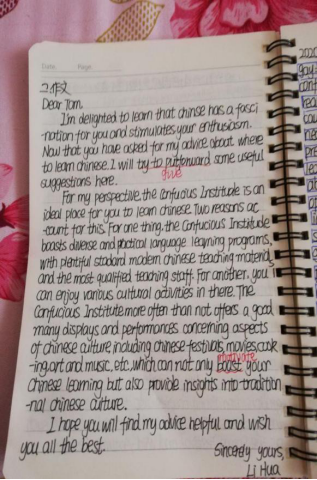 Date: Page:
2.作文
Dear Tom,
I'm delighted to learn that chinse has a fasci
-nation for you and stimulates your enthusiasm.
Now that you have asked for my advice about where
to learn chinese. I will try to putforward some useful
give
suggestions here.
For my perspective, the Confucius Institude is an
ideal place for you to learn chinese. Two reasons ac
-count for this. For one thing, the Confucius Institude
boasts diverse and practical language learning programs,
with plentiful standard modern chinese teaching materials
and the most qualified teaching staff. For another, you
can enjoy various cultural activities in there. The
Confucius Institute more often than not offers a good
many displays and performances concerning aspects
of chinese culture, including chinese festivals, movies, cook
motivate
-ing, art and music, etc, which can not any boost your
Chinese learning but also provide insights into tradition
-nal chinese culture.
I hope you will find my advice helpful and wish
you all the best.
Sincerely yours,
Li Hua